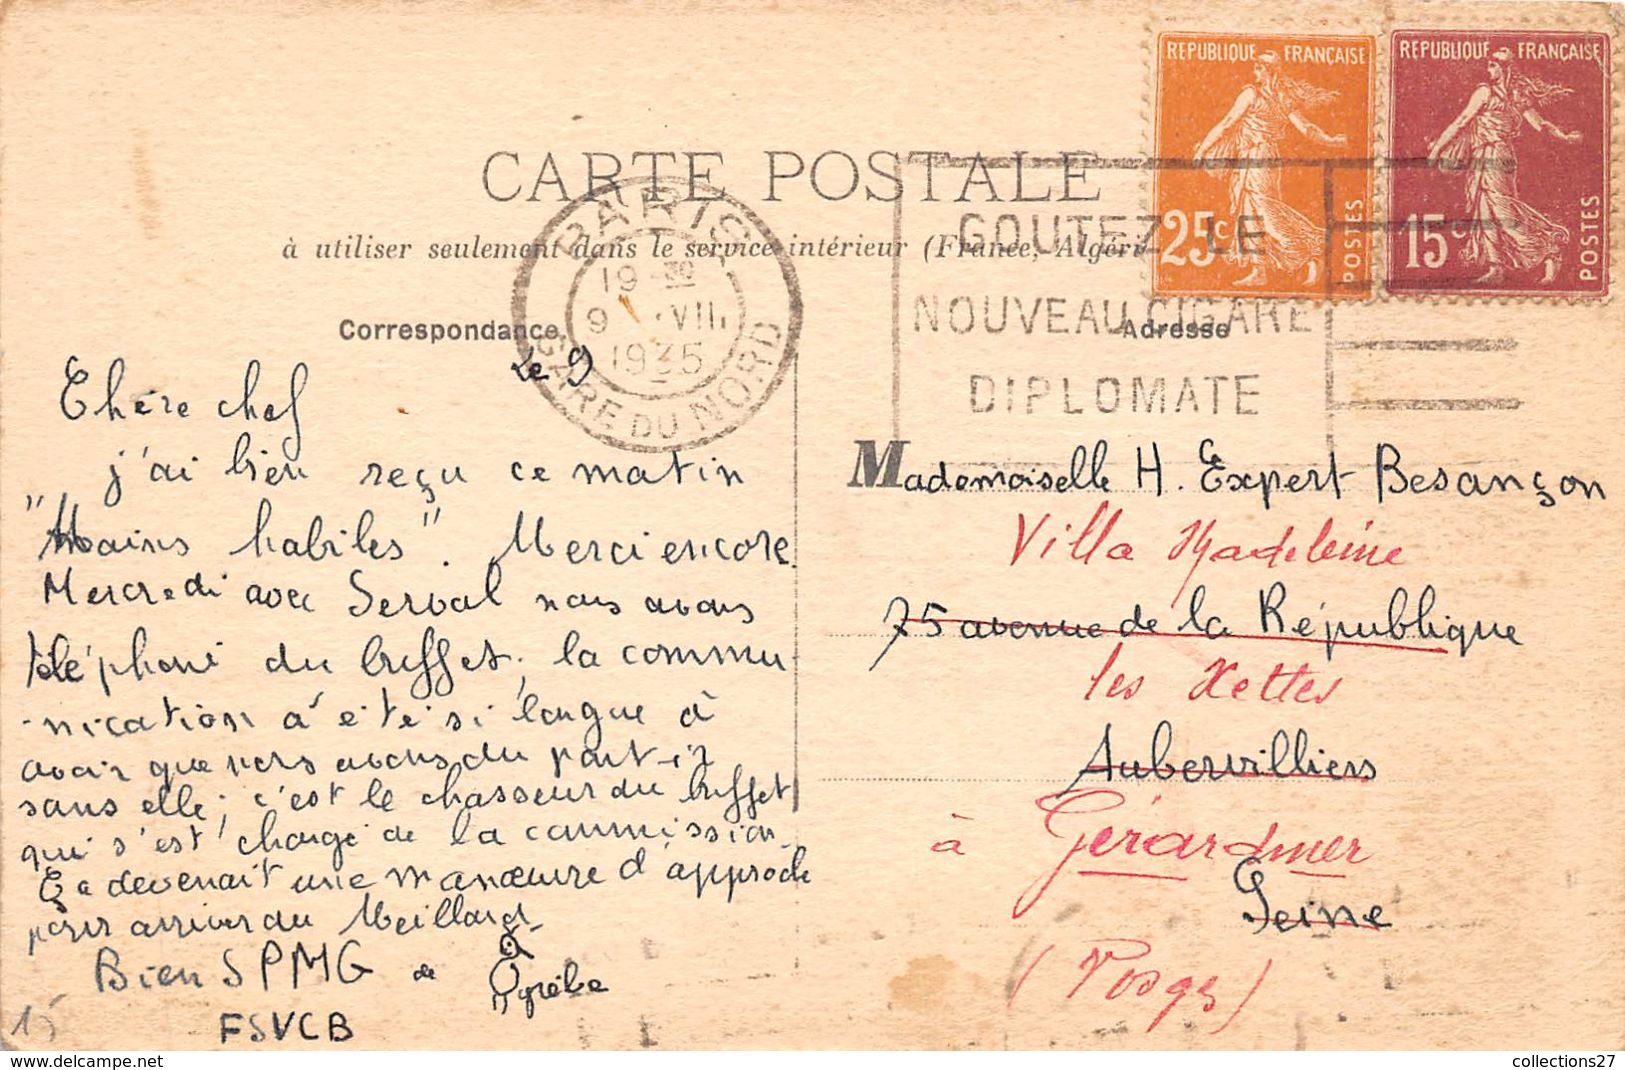 REPUBLIQUE FRANÇAISE
25c
POSTES
REPUBLIQUE FRANÇAISE
15c
POSTES
CARTE POSTALE
à utiliser seulement dans le service intérieur (France, Algéri
PARIS
19 30
9 VII
1935
GARE DU NORD
GOUTEZ LE
NOUVEAU CIGARE
DIPLOMATE
Correspondance
Adresse
Le 9
Chère chef
j'ai bien reçu ce matin
"Mains habiles". Merci encore
Mercredi avec Serval nous avons
téléphoné du buffet, la commu-
-nication a été si longue à
avoir que nous avons du partir
sans elle; c'est le chasseur du buffet
qui s'est chargé de la commission
Ça devenait une manœuvre d'approche
pour arriver au Meillard
Bien SPMG de
grèbe
FSVCB
15
Mademoiselle H. Expert Besançon
Villa Madeleine
75 avenue de la République
les Xettes
Aubervilliers
à Gérardmer
Seine
(Vosges)
collections27